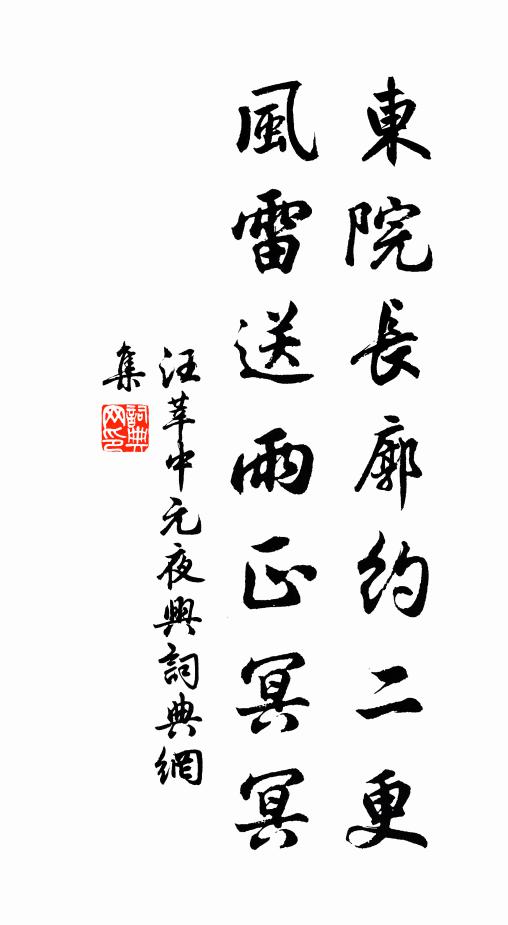 東院長廓約二更
風雷送雨正冥冥
汪莘中元夜興詞典網
集
詞典
网印